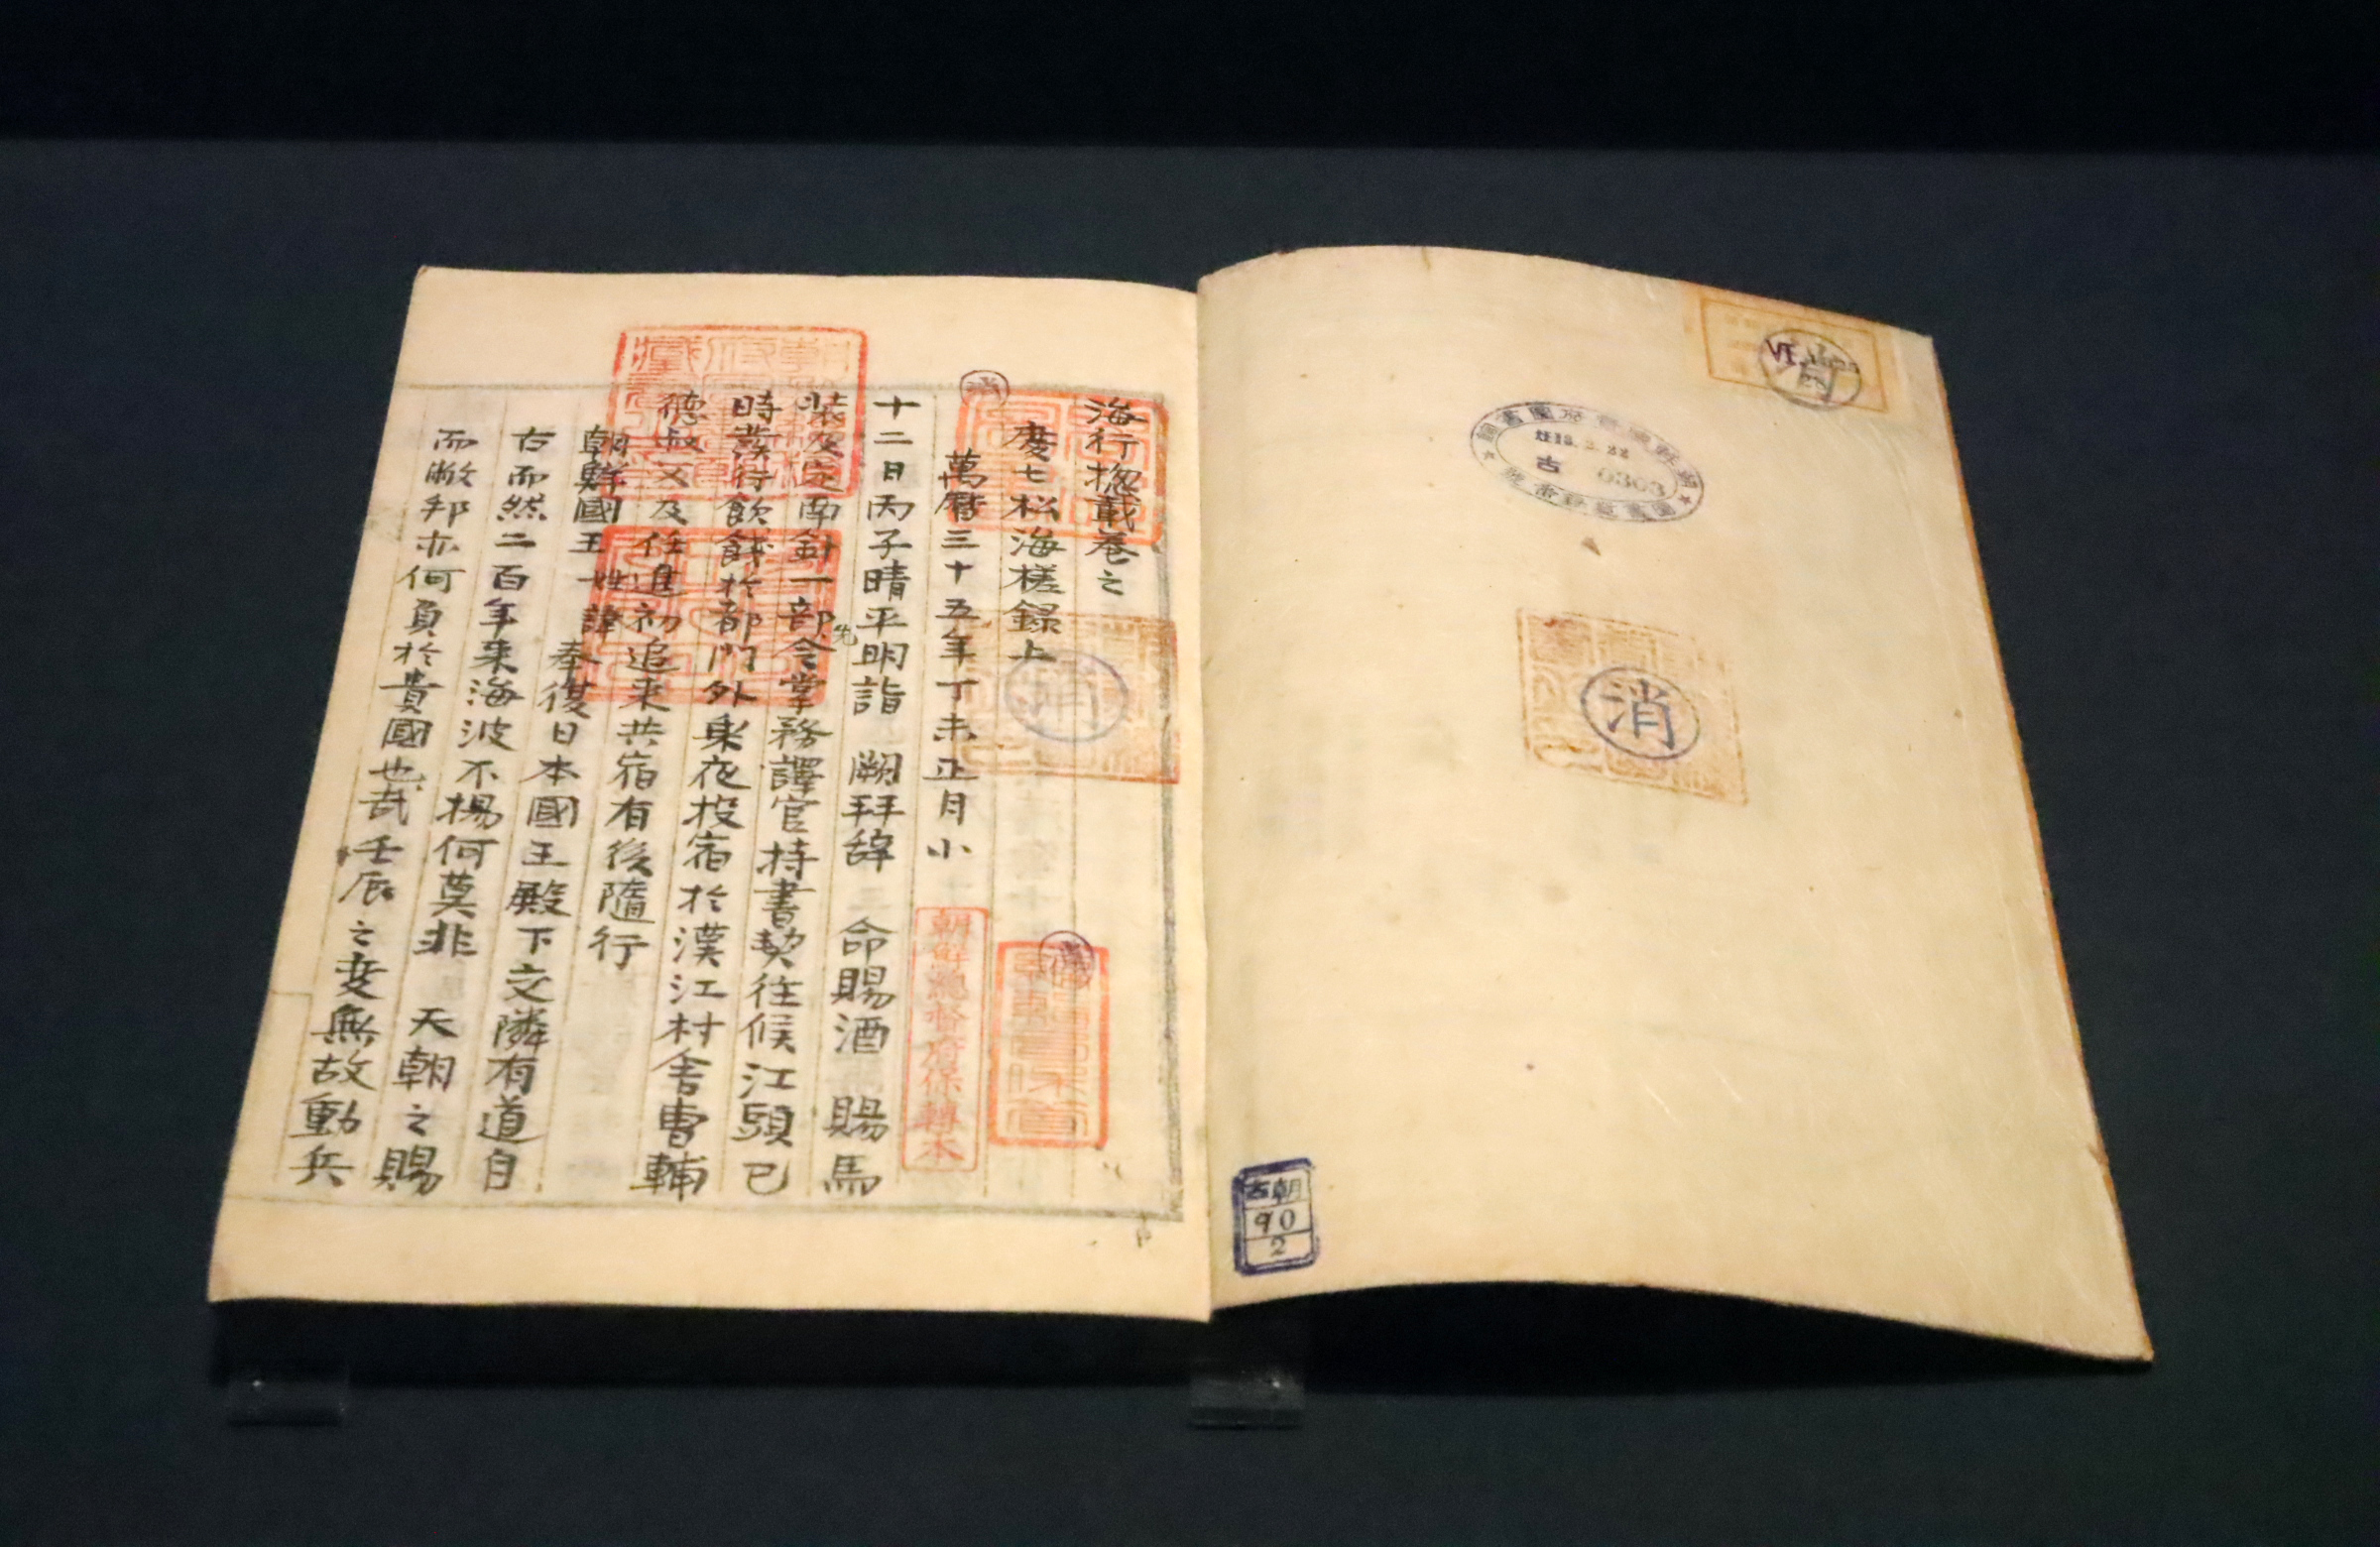 海行摠載卷之
慶七松海槎録上
萬曆三十五年丁未正月小
十二日丙子晴平明詣 闕拜辞 命賜酒 賜馬
裝 南針一部先令掌務譯官持書契往候江頭已
時發行飲餞於都門外乘夜投宿於漢江村舍曺輔
德 又及任進初追来共宿有後隨行
朝鮮國王姓諱 奉復日本國王殿下交隣有道自
古而然二百年来海波不揚何莫非 天朝之賜
而敝邦亦何負於貴國也哉壬辰之變無故動兵
朝鮮總督府保轉本
消
消
古
0303
古朝
90
2